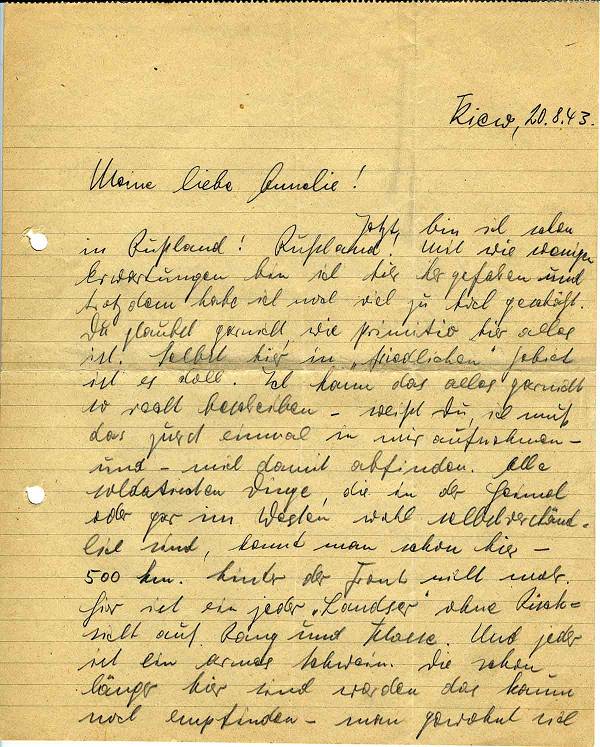 Kiew, 20.8.43.
Meine liebe Annelie!
Jetzt bin ich schon
in Rußland! Rußland! Mit wie wenigen
Erwartungen bin ich hier her gefahren und
trotzdem habe ich noch viel zu hoch geschätzt.
Du glaubst garnicht wie primitiv hier alles
ist. Selbst hier in „friedlichen" Gebiet
ist es doll. Ich kann das alles garnicht
so recht beschreiben – weißt Du, ich muß
das zuerst einmal in mir aufnehmen –
und – mich damit abfinden. Alle
soldatischen Dinge, die in der Heimat
oder gar im Westen wohl selbstverständ-
lich sind, kennt man schon hier –
500 km. hinter der Front nicht mehr.
Hier ist ein jeder „Landser" ohne Rück-
sicht auf Rang und Klasse. Und jeder
ist ein armes Schwein. Die schon
länger hier sind werden das kaum
noch empfinden – man gewöhnt sich